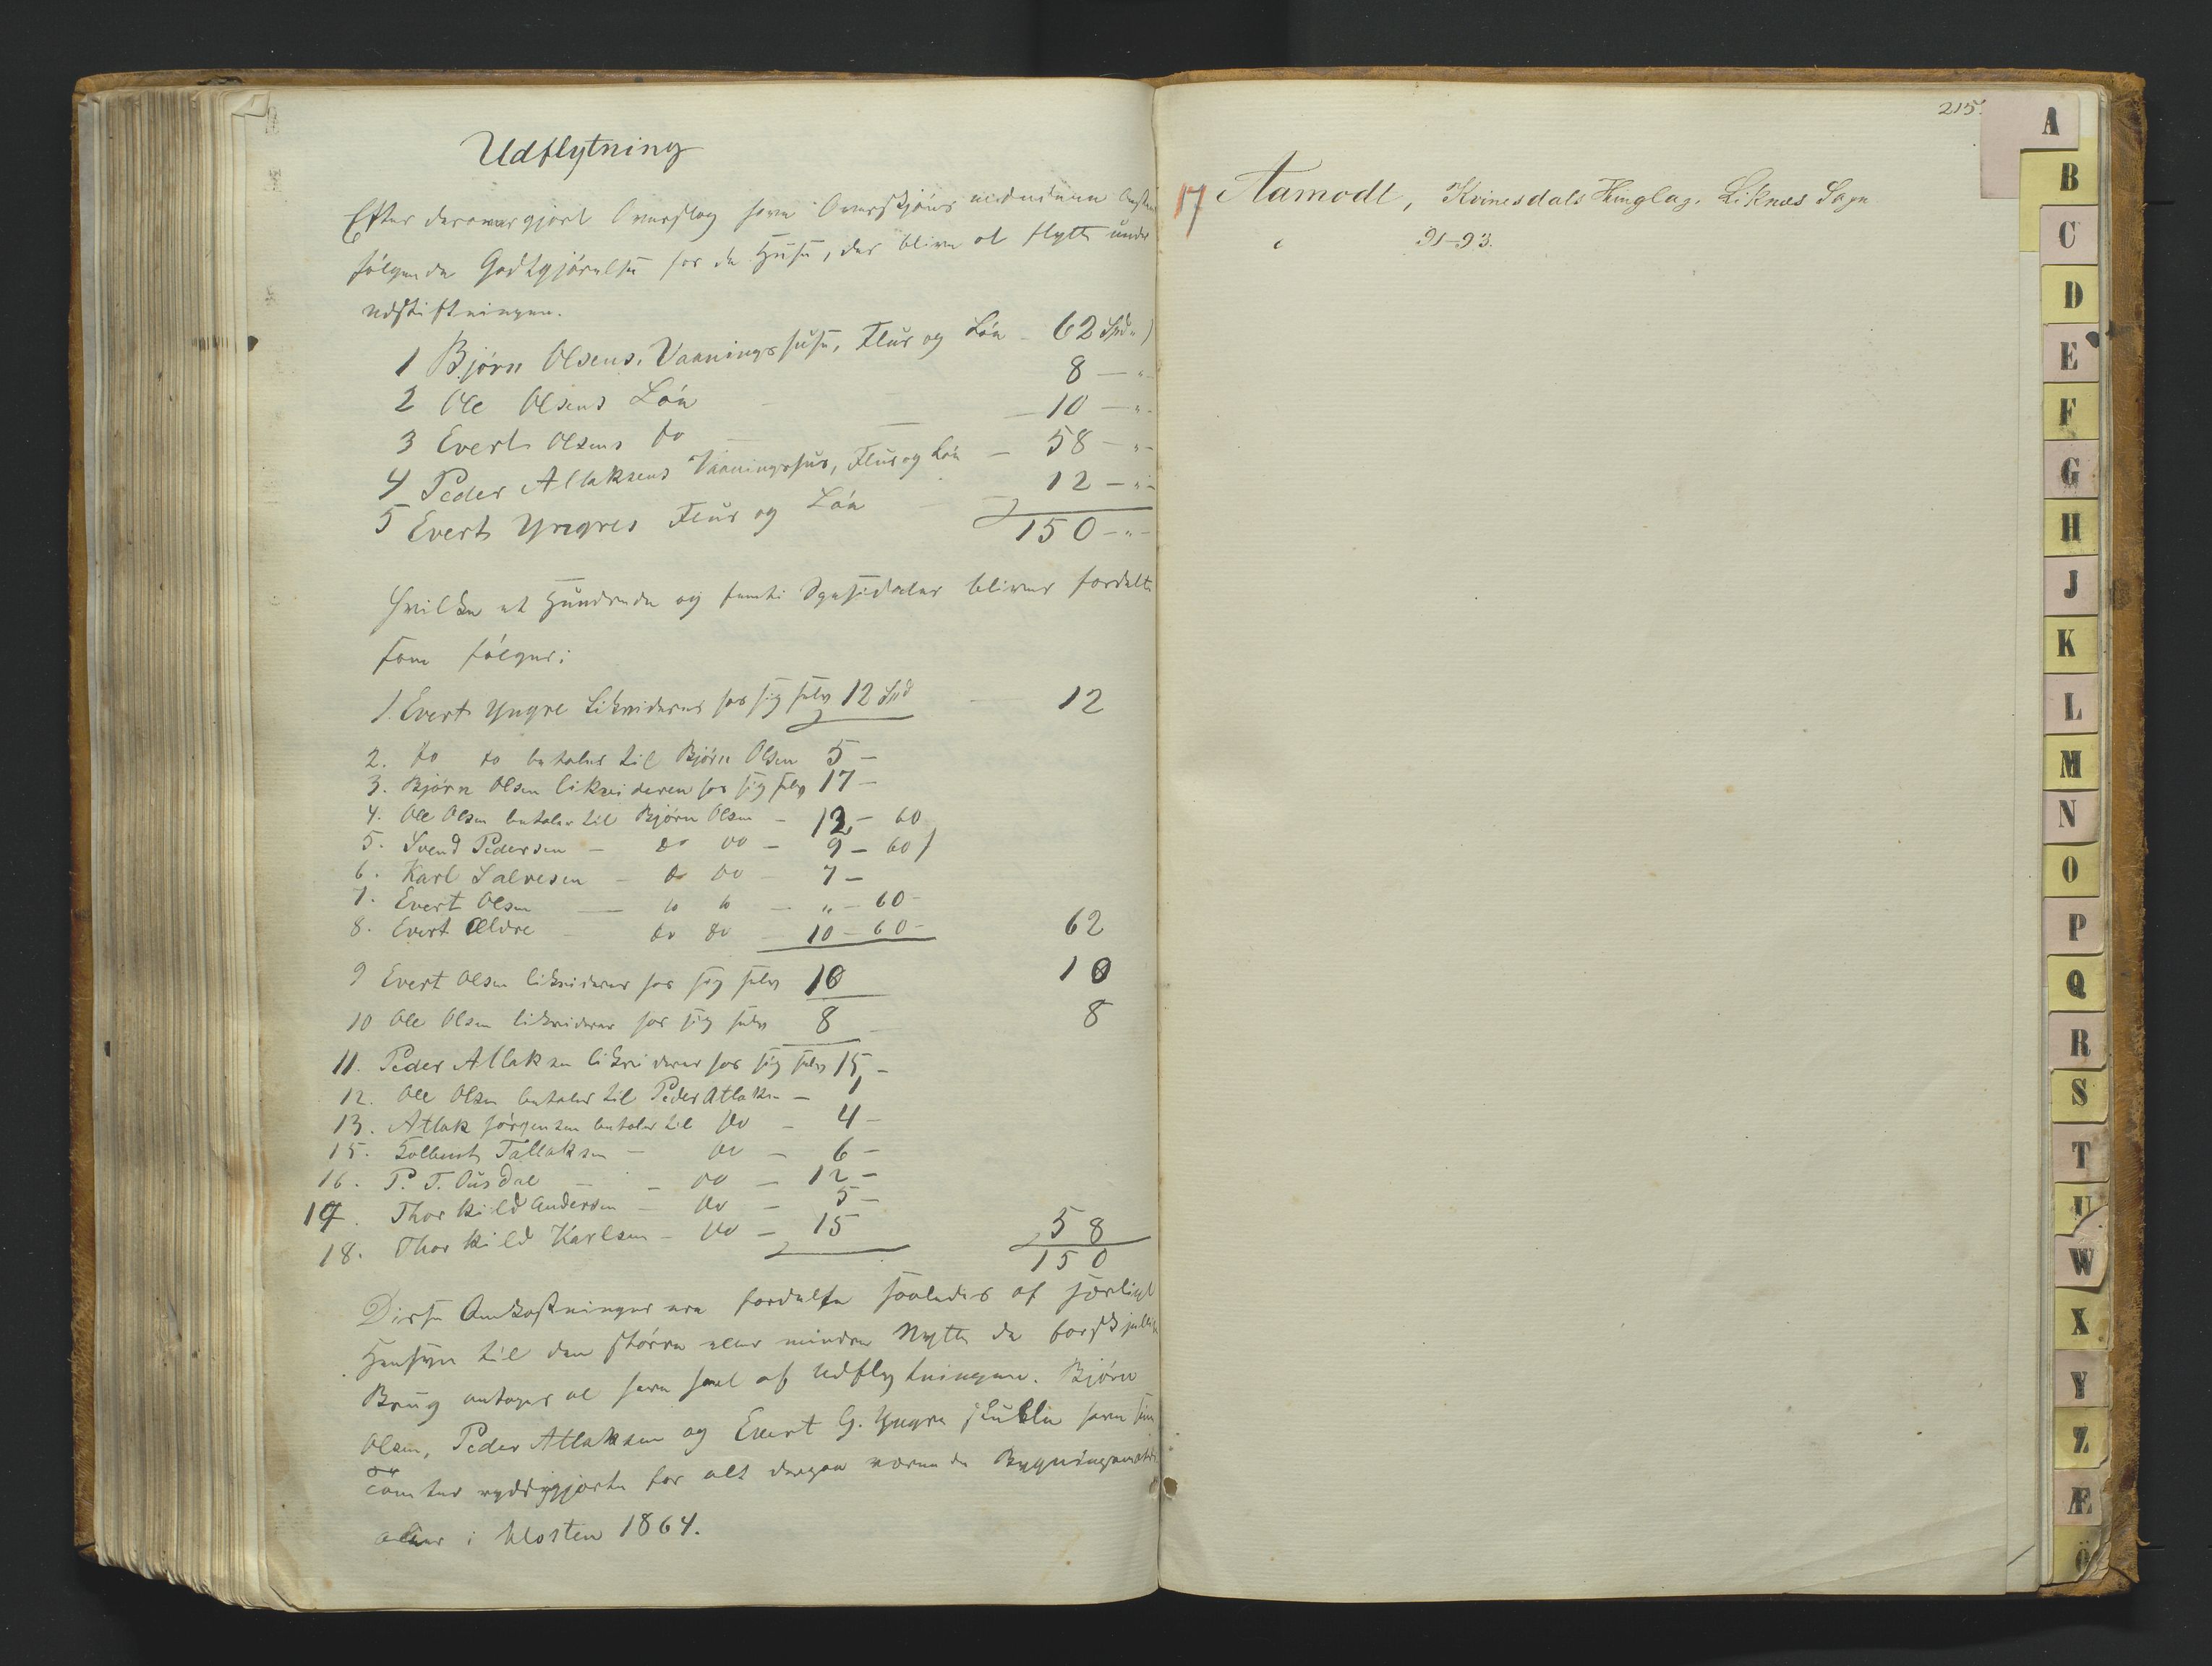 Udflytning
Efter derover gjort Overslag have Overskjøns mændene
følgende Godtgjørelse for de Huse, der blive at flytte under
Udskiftningen.
1 Bjørn Olsens Vaaningshuse, Flur og Løe - 62 Spd "
2 Ole Olsens Løe - 8 - " -
3 Evert Olsens do - 10 - " -
4 Peder Atlaksens Vaaningshus, Flur og Løe - 58 - " -
5 Evert Yngres Flur og Løe 12 - " -
150 - " -
Hvilke et Hundrede og femti Speciedaler bliver fordelte
som følger:
1. Evert Yngre Likviderer for sig selv 12 Spd - 12
2. do do betaler til Bjørn Olsen 5 -
3. Bjørn Olsen likviderer for sig selv 17 -
4. Ole Olsen betaler til Bjørn Olsen - 12 - 60
5. Svend Pedersen - do do - 9 - 60
6. Karl Salvesen - do do - 7 -
7. Evert Olsen - do do - " - 60 -
8. Evert Ældre - do do - 10 - 60 - 62
9 Evert Olsen likviderer for sig selv 10 10
10 Ole Olsen likviderer for sig selv 8 - 8
11. Peder Atlaksen likviderer for sig selv 15 -
12. Ole Olsen betaler til Peder Atlaks. - 1
13. Atlak Jørgensen betaler til do - 4 -
15. Tallaksen - do - 6 -
16. P. T. Ousdal - do - 12 -
17. Thorkild Andersen - do - 5 -
18. Thorkild Karlsen - do - 15 58
150
Disse Omkostninger ere fordelte saaledes af særligt
Hensyn til den større eller mindre Nytte de forskjellige
Brug antages at have havt af Udflytningene. Bjørn
Olsen, Peder Atlaksen og Evert G. Yngre skulle have sine
Tomter ryddiggjorte for alt derpaa værende
i Høsten 1864.
215.
17 Aamodt, Kvinesdals Thinglag. Liknes Sogn
91-93.
A
B
C
D
E
F
G
H
J
K
L
M
N
O
P
Q
R
S
T
U
W
X
Y
Z
Æ
Ö